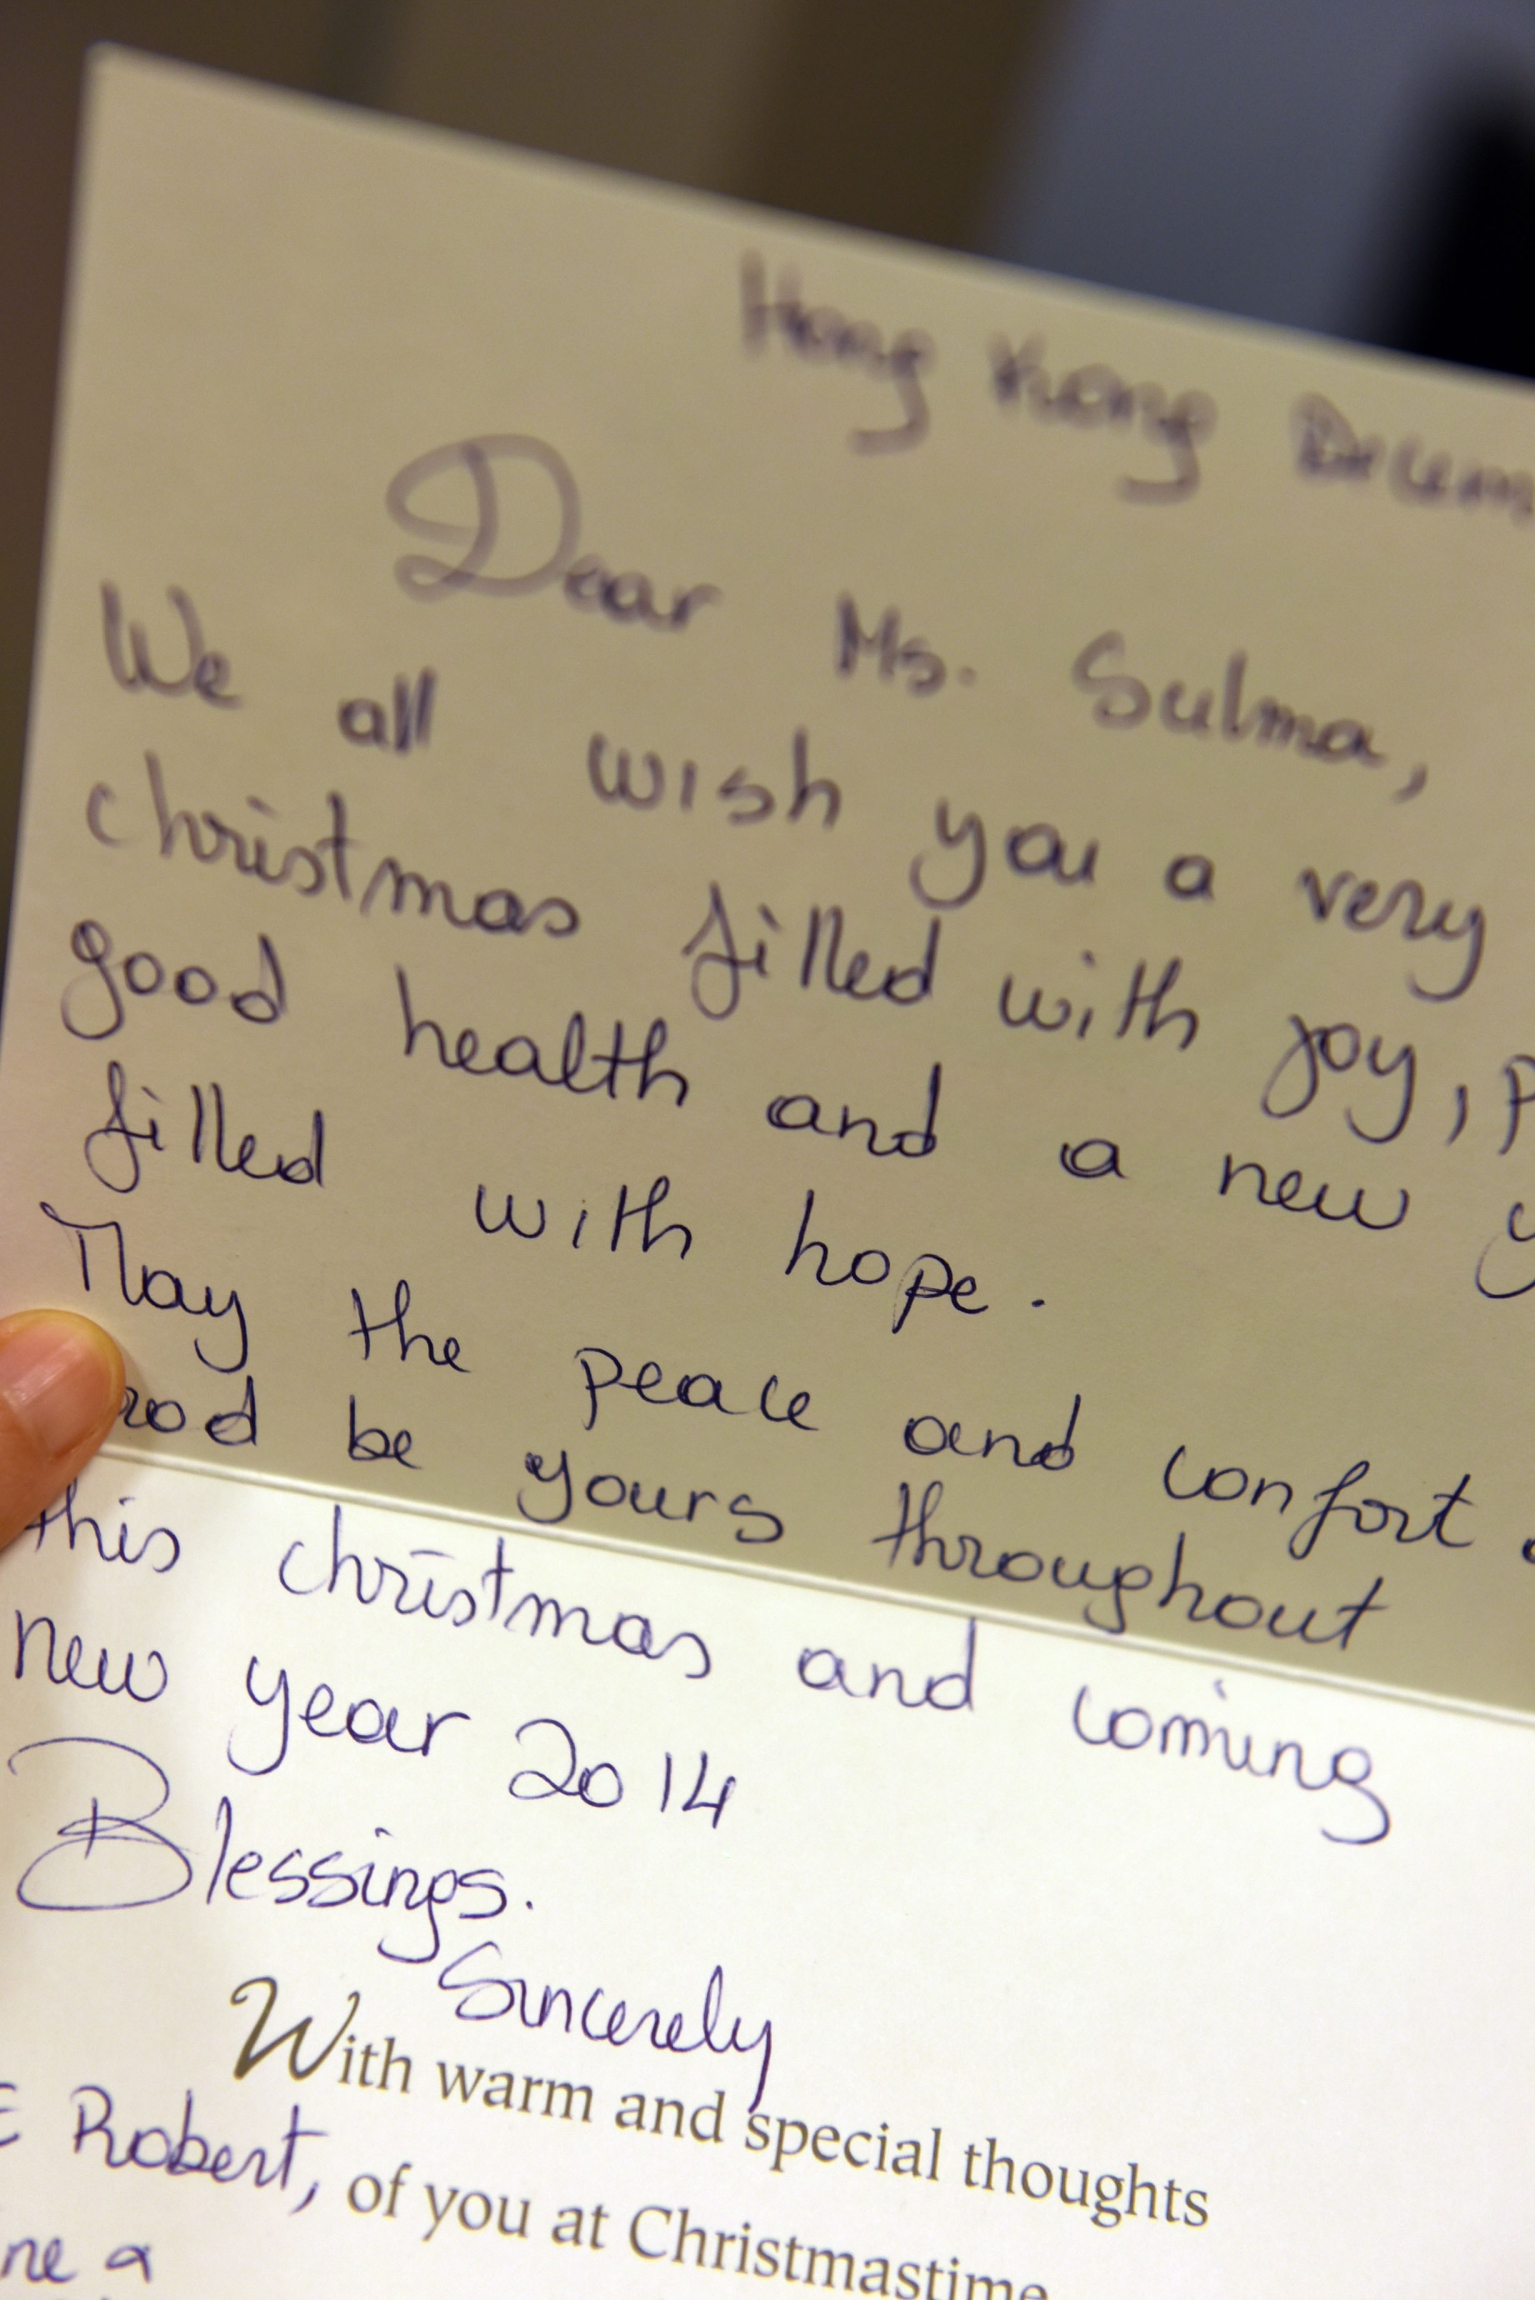 Hong Kong Decem
Dear Ms. Sulma,
We all wish you a very
christmas filled with joy, p
good health and a new y
filled with hope.
May the peace and confort
be yours throughout
this christmas and coming
new year 2014
Blessings.
Sincerely
With warm and special thoughts
Robert, of you at Christmastime
ne a